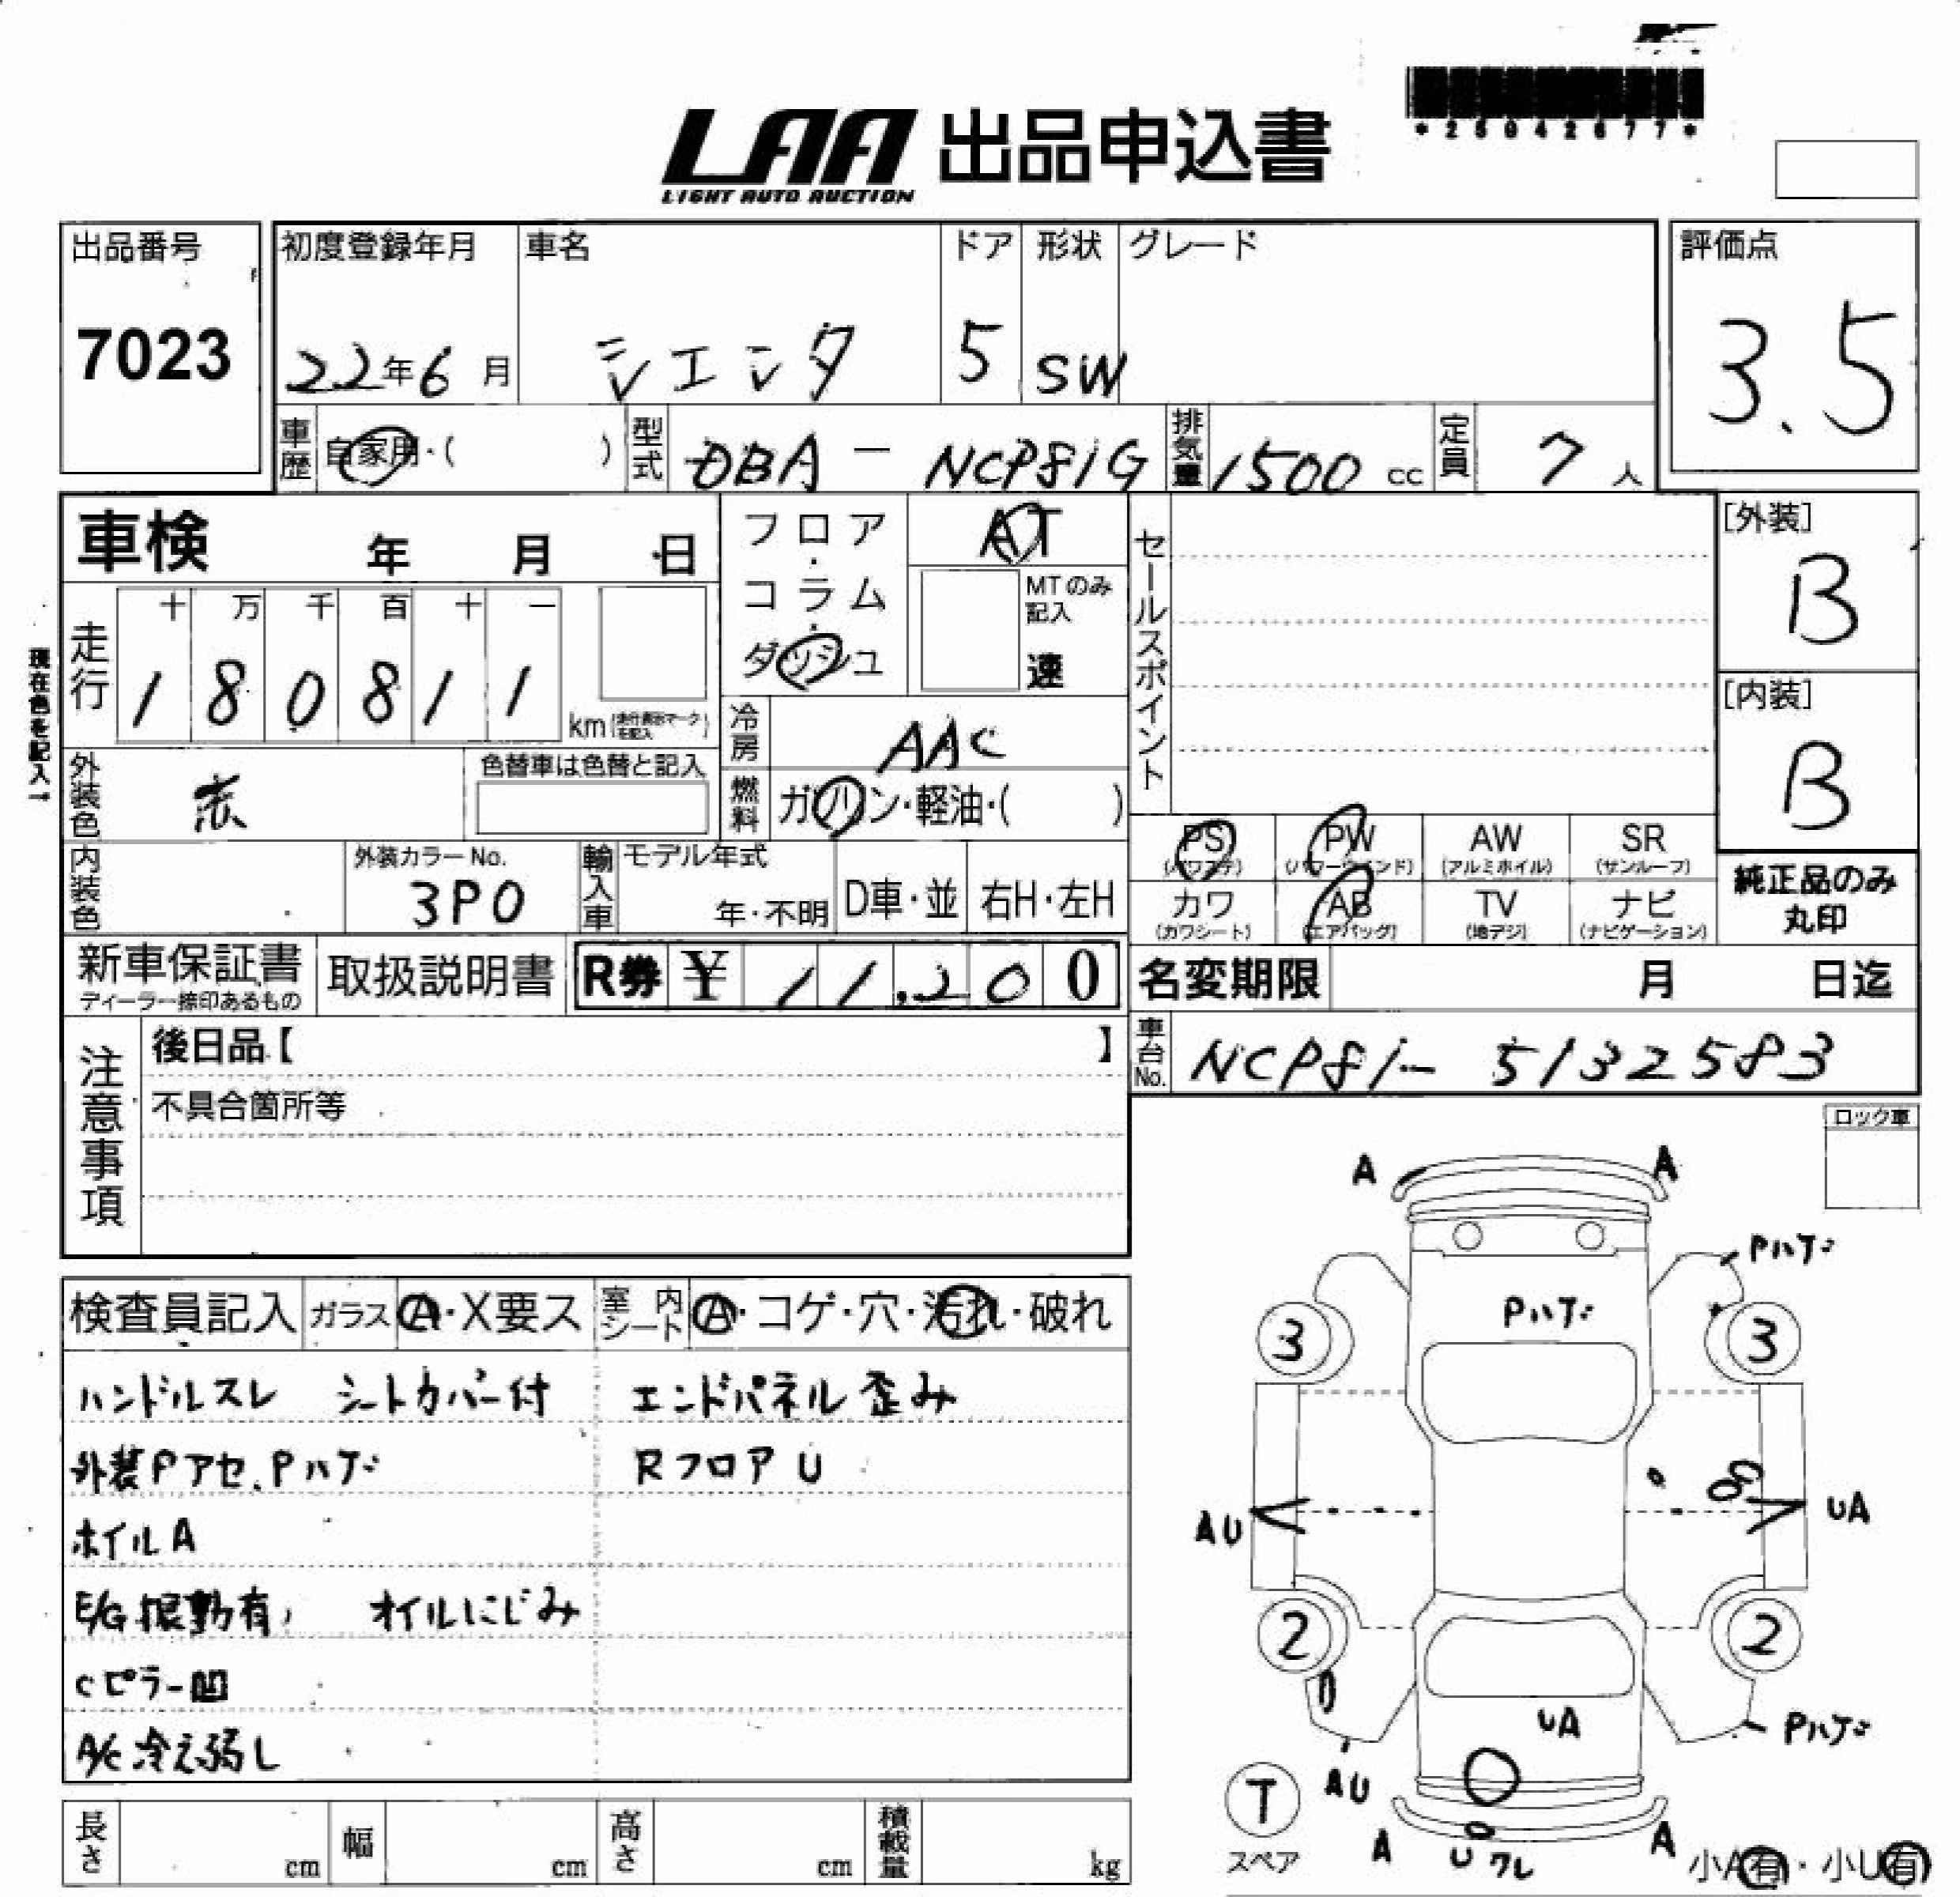 *25042677*
LAA 出品申込書
LIGHT AUTO AUCTION
出品番号 初度登録年月 車名 ドア 形状 グレード 評価点
7023 22年6月 シエンタ 5 SW 3.5
車歴 自家用・( ) 型式 DBA-NCP81G 排気量 1500 cc 定員 7 人
車検 年 月 日 フロア・コラム・ダッシュ AT セールスポイント [外装]
MTのみ記入 速 B
現在色を記入
走行 十 万 千 百 十 一
1 8 0 8 1 1 km(走行表示マークを記入) [内装]
冷房 AAC B
外装色 赤 色替車は色替と記入 燃料 ガソリン・軽油・( )
PS PW AW SR
(パワステ) (パワーウインド) (アルミホイル) (サンルーフ)
内装色 外装カラーNo. 輸入車 モデル年式 純正品のみ
3P0 年・不明 D車・並 右H・左H カワ AB TV ナビ 丸印
(カワシート) (エアバッグ) (地デジ) (ナビゲーション)
新車保証書 取扱説明書 R券 ¥ 11,200 名変期限 月 日迄
ディーラー捺印あるもの
注意事項 後日品【 】 車台No. NCP81-5132583
不具合箇所等 ロック車
検査員記入 ガラス A・X要ス 室内シート A・コゲ・穴・汚れ・破れ
ハンドルスレ シートカバー付 エンドパネル歪み
外装Pアセ、Pハゲ RフロアU
ホイルA
E/G振動有、 オイルにじみ
Cピラー凹
A/C冷え弱し
A A
Pハゲ
Pハゲ
3 3
AU UA
2 2
UA Pハゲ
T AU
スペア A U ワレ A 小A有・小U有
長さ cm 幅 cm 高さ cm 積載量 kg